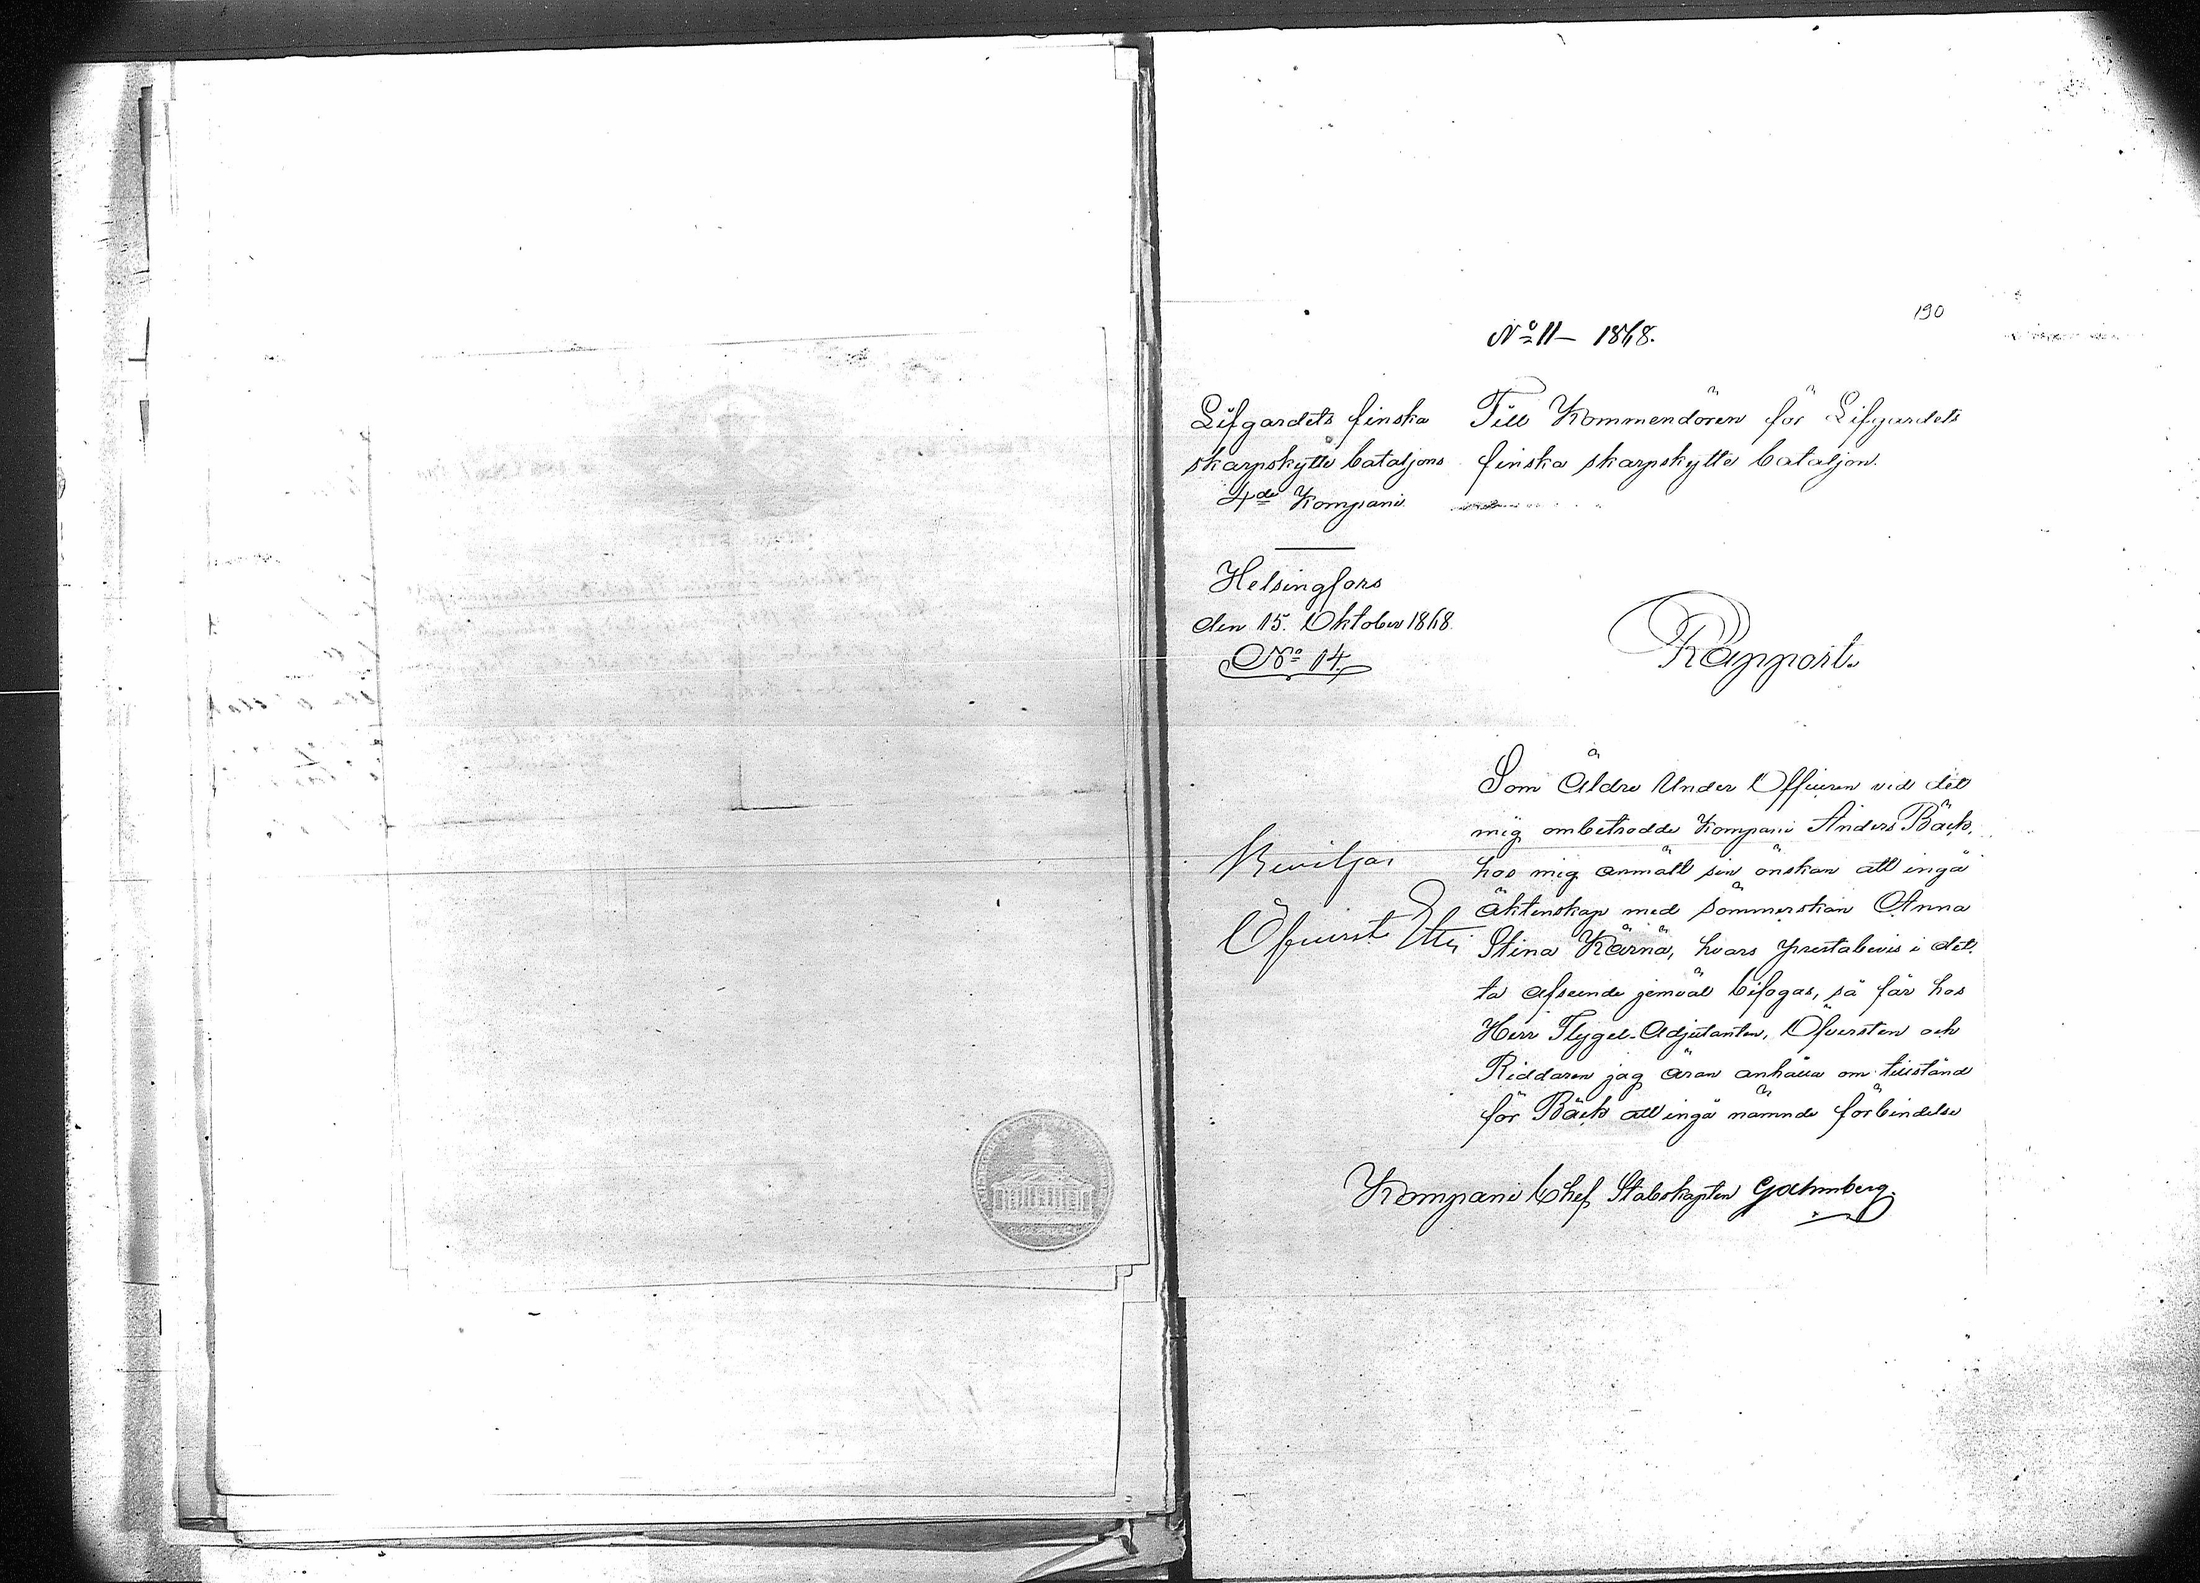 190
Nº 11 — 1868.
Lifgardets finska
skarpskytte bataljons
4de Kompani
Helsingfors
den 15. Oktober 1868.
Nº 14.
Till Kommendören för Lifgardets
finska skarpskytte bataljon.
Rapport.
Som Äldre Under Officeren vid det
mig ombetrodde Kompani Anders Bäck,
hos mig anmält sin önskan att ingå
äktenskap med sömmerskan Anna
Stina Kärnä, hvars prestabevis i det-
ta afseende jemväl bifogas, så får hos
Herr Flygel-Adjutanten, Öfversten och
Riddaren jag äran anhålla om tillstånd
för Bäck att ingå nämnde förbindelse
Kompani Chef, Stabskapten
Beviljas
Öfverste